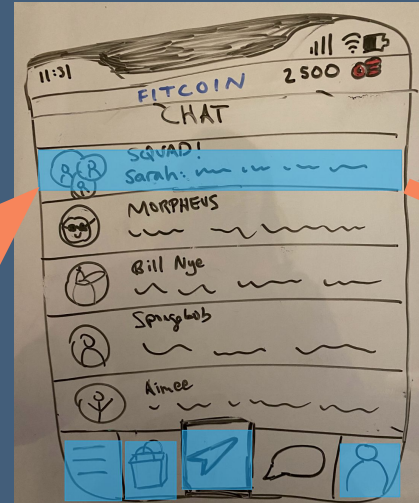 11:31
FITCOIN
2500
CHAT
SQUAD!
Sarah:
MORPHEUS
Bill Nye
Spongebob
Aimee